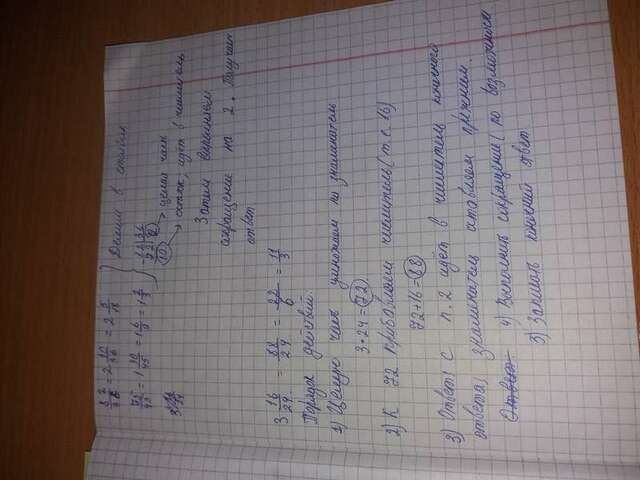 82/36 = 2 10/36 = 2 5/18
Делим в столбик
75/45 = 1 30/45 = 1 6/9 = 1 2/3
- 82 | 36
72 | 2 → целая часть
10 → остаток, идёт в числитель
Затем выполняем
сокращение на 2. Получаем
ответ
3 16/24 = 88/24 = 22/6 = 11/3
Порядок действий:
1) Целую часть умножаем на знаменатель
3·24=72
2) К 72 прибавляем числитель (т.е. 16)
72+16=88
3) Ответ с п.2 идёт в числитель конечного
ответа, знаменатель оставляем прежним.
Ответ 4) Выполнить сокращение (по возможности
5) Записать конечный ответ